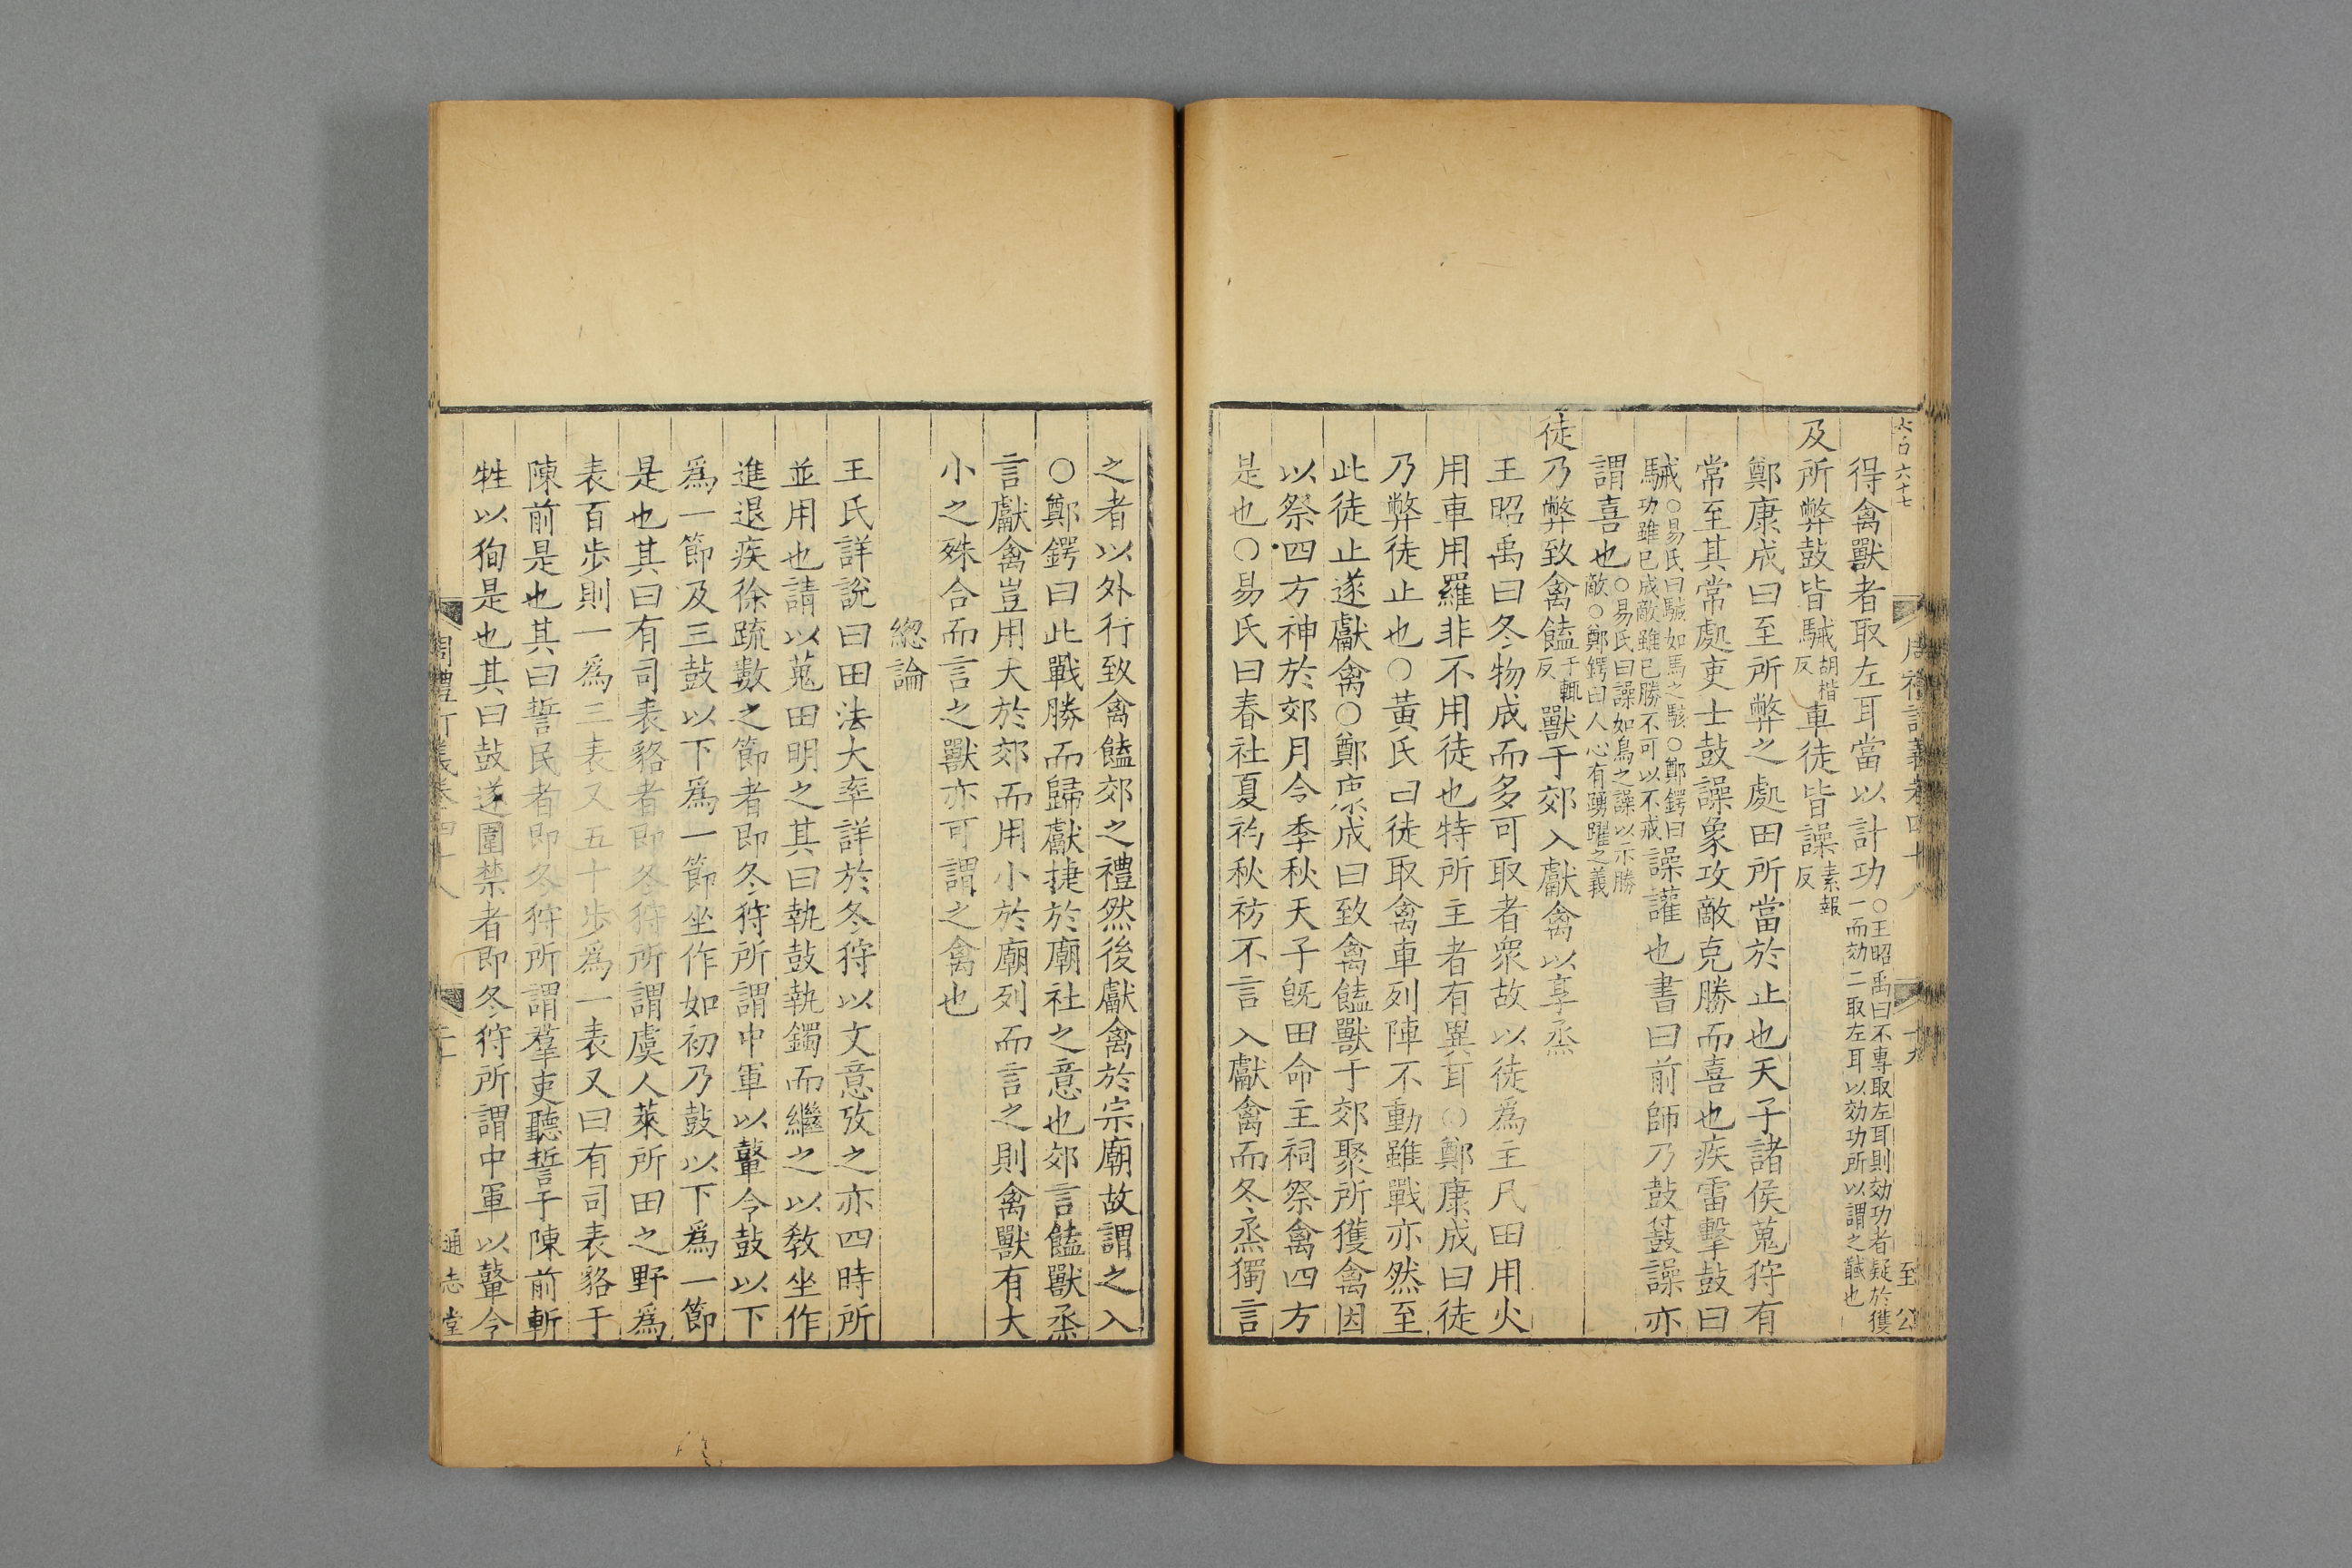 六十七
周禮訂義卷四十八
十九
至公
得禽獸者取左耳當以計功○王昭禹曰不專取左耳則効功者疑於獲一而効二取左耳以効功所以謂之馘也
及所弊鼓皆駴胡楷反車徒皆譟素報反
鄭康成曰至所弊之處田所當於止也天子諸侯蒐狩有
常至其常處吏士鼓譟象攻敵克勝而喜也疾雷擊鼓曰
駴○易氏曰駴如馬之駭○鄭鍔曰功雖已成敵雖已勝不可以不戒譟讙也書曰前師乃鼓鼖譟亦
謂喜也○易氏曰譟如鳥之譟以示勝敵○鄭鍔曰人心有踴躍之義
徒乃弊致禽饁于輒反獸于郊入獻禽以享烝
王昭禹曰冬物成而多可取者衆故以徒爲主凡田用火
用車用羅非不用徒也特所主者有異耳○鄭康成曰徒
乃弊徒止也○黃氏曰徒取禽車列陣不動雖戰亦然至
此徒止遂獻禽○鄭康成曰致禽饁獸于郊聚所獲禽因
以祭四方神於郊月令季秋天子旣田命主祠祭禽四方
是也○易氏曰春社夏礿秋祊不言入獻禽而冬烝獨言
之者以外行致禽饁郊之禮然後獻禽於宗廟故謂之入
○鄭鍔曰此戰勝而歸獻捷於廟社之意也郊言饁獸烝
言獻禽豈用大於郊而用小於廟列而言之則禽獸有大
小之殊合而言之獸亦可謂之禽也
緫論
王氏詳說曰田法大率詳於冬狩以文意攷之亦四時所
並用也請以蒐田明之其曰執鼓執鐲而繼之以敎坐作
進退疾徐疏數之節者即冬狩所謂中軍以鼙令鼓以下
爲一節及三鼓以下爲一節坐作如初乃鼓以下爲一節
是也其曰有司表貉者即冬狩所謂虞人萊所田之野爲
表百步則一爲三表又五十步爲一表又曰有司表貉于
陳前是也其曰誓民者即冬狩所謂羣吏聽誓于陳前斬
牲以狥是也其曰鼓遂圍禁者即冬狩所謂中軍以鼙令
周禮訂義卷四十八
二十
通志堂